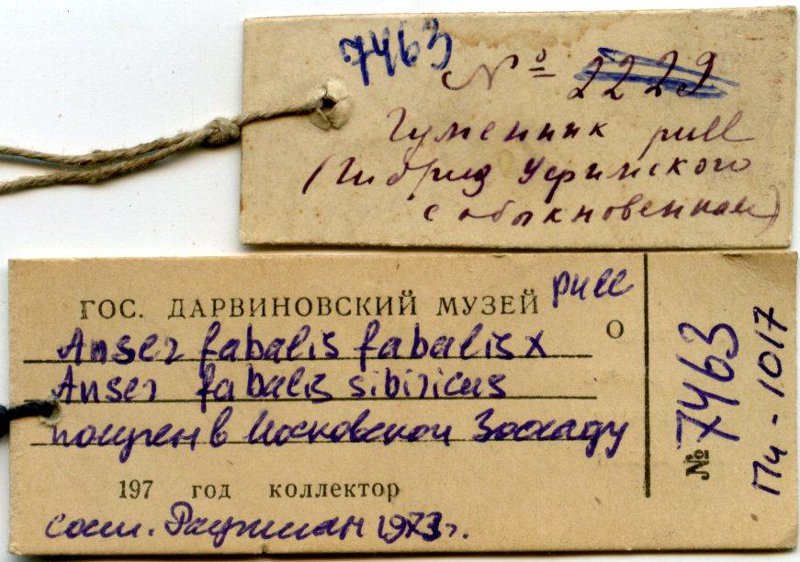 7463
№ 2229
Гуменник pull
(Гибрид Уфимского
с обыкновенным)
ГОС. ДАРВИНОВСКИЙ МУЗЕЙ pull
О
Anser fabalis fabalis x
Anser fabalis sibiricus
получен в Московском Зоосаду
197 год коллектор
1973 г.
№ 7463
Пч-1017